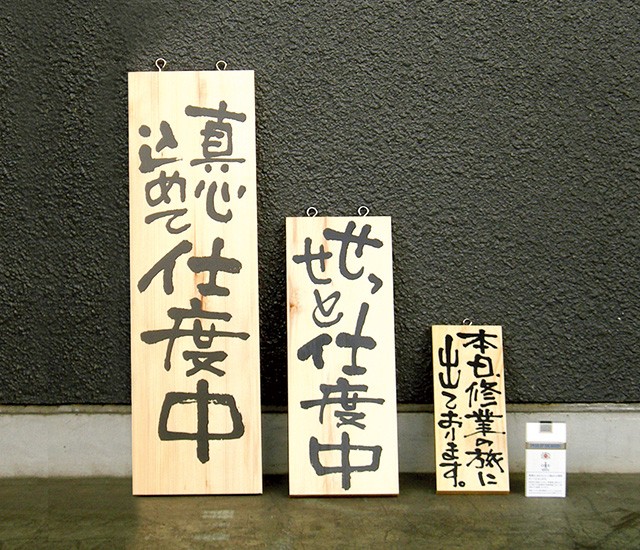 真心
込めて
仕度中
せっ
せと
仕度中
本日、修業の旅に
出ております。